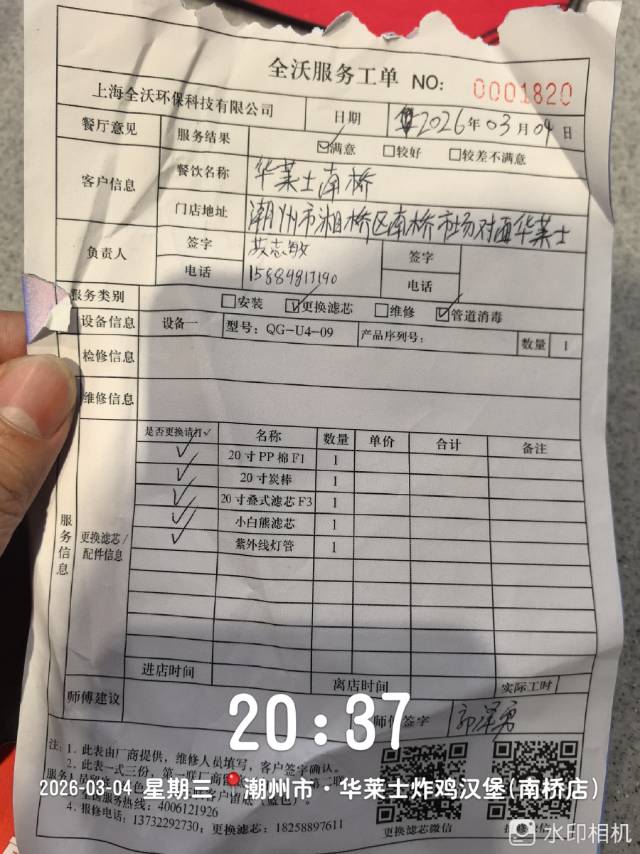 全沃服务工单 NO: 0001820
上海全沃环保科技有限公司 日期 2026年03月04日
餐厅意见 服务结果 ☑满意 □较好 □较差不满意
客户信息 餐饮名称 华莱士南桥
门店地址 潮州市湘桥区南桥市场对面华莱士
负责人 签字 签字
电话 电话
服务类别 □安装 ☑更换滤芯 □维修 ☑管道消毒
设备信息 设备一 型号: QG-U4-09 产品序列号: 数量 1
检修信息
维修信息
服务信息 更换滤芯/配件信息
是否更换请打✓ 名称 数量 单价 合计 备注
✓ 20寸PP棉F1 1
✓ 20寸炭棒 1
✓ 20寸叠式滤芯F3 1
✓ 小白熊滤芯 1
✓ 紫外线灯管 1
进店时间 离店时间 实际工时
师傅建议 师傅签字
20:37
注: 1. 此表由厂商提供, 维修人员填写, 客户签字确认。
2. 此表一式三份, 第一联厂商留
2026-03-04 星期三 潮州市·华莱士炸鸡汉堡(南桥店)
全国服务热线: 4006121926
4. 报修电话: 13732292730; 更换滤芯: 18258897611
更换滤芯微信
水印相机